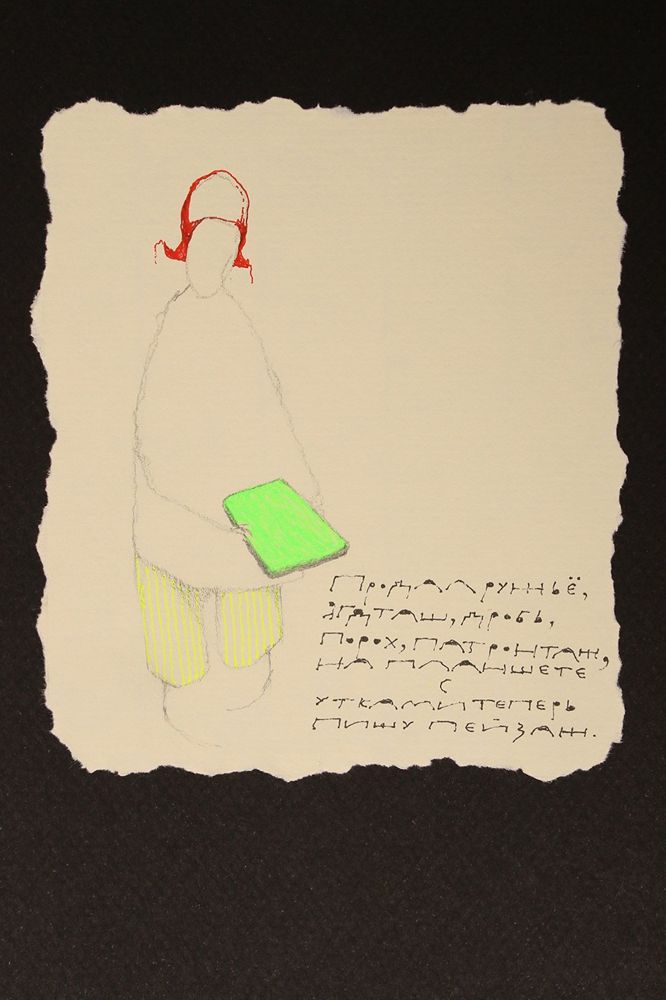 Продал ружьё,
ягдташ, дробь,
порох, патронташ,
на планшете
с
утками теперь
пишу пейзаж.